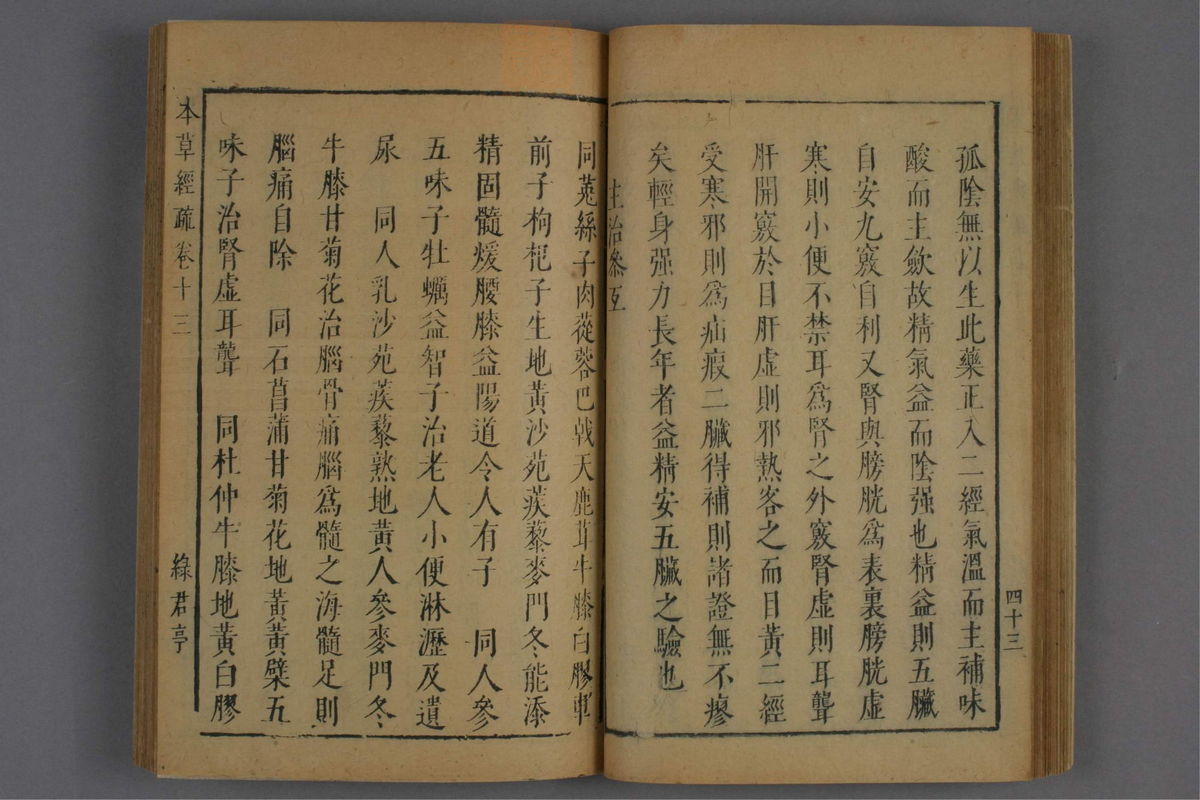 孤陰無以生此藥正入二經氣溫而主補味
酸而主歛故精氣益而陰强也精益則五臟
自安九竅自利又腎與膀胱爲表裏膀胱虛
寒則小便不禁耳爲腎之外竅腎虛則耳聾
肝開竅於目肝虛則邪熱客之而目黃二經
受寒邪則爲疝瘕二臟得補則諸證無不瘳
矣輕身强力長年者益精安五臟之驗也
主治參互
四十三
同菟絲子肉蓯蓉巴戟天鹿茸牛膝白膠車
前子枸杞子生地黃沙苑蒺藜麥門冬能添
精固髓煖腰膝益陽道令人有子　同人參
五味子牡蠣益智子治老人小便淋瀝及遺
尿　同人乳沙苑蒺藜熟地黃人參麥門冬
牛膝甘菊花治腦骨痛腦爲髓之海髓足則
腦痛自除　同石菖蒲甘菊花地黃黃檗五
味子治腎虛耳聾　同杜仲牛膝地黃白膠
本草經疏卷十三
綠君亭